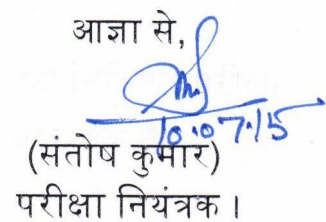 आज्ञा से,
10.07.15
(संतोष कुमार)
परीक्षा नियंत्रक।